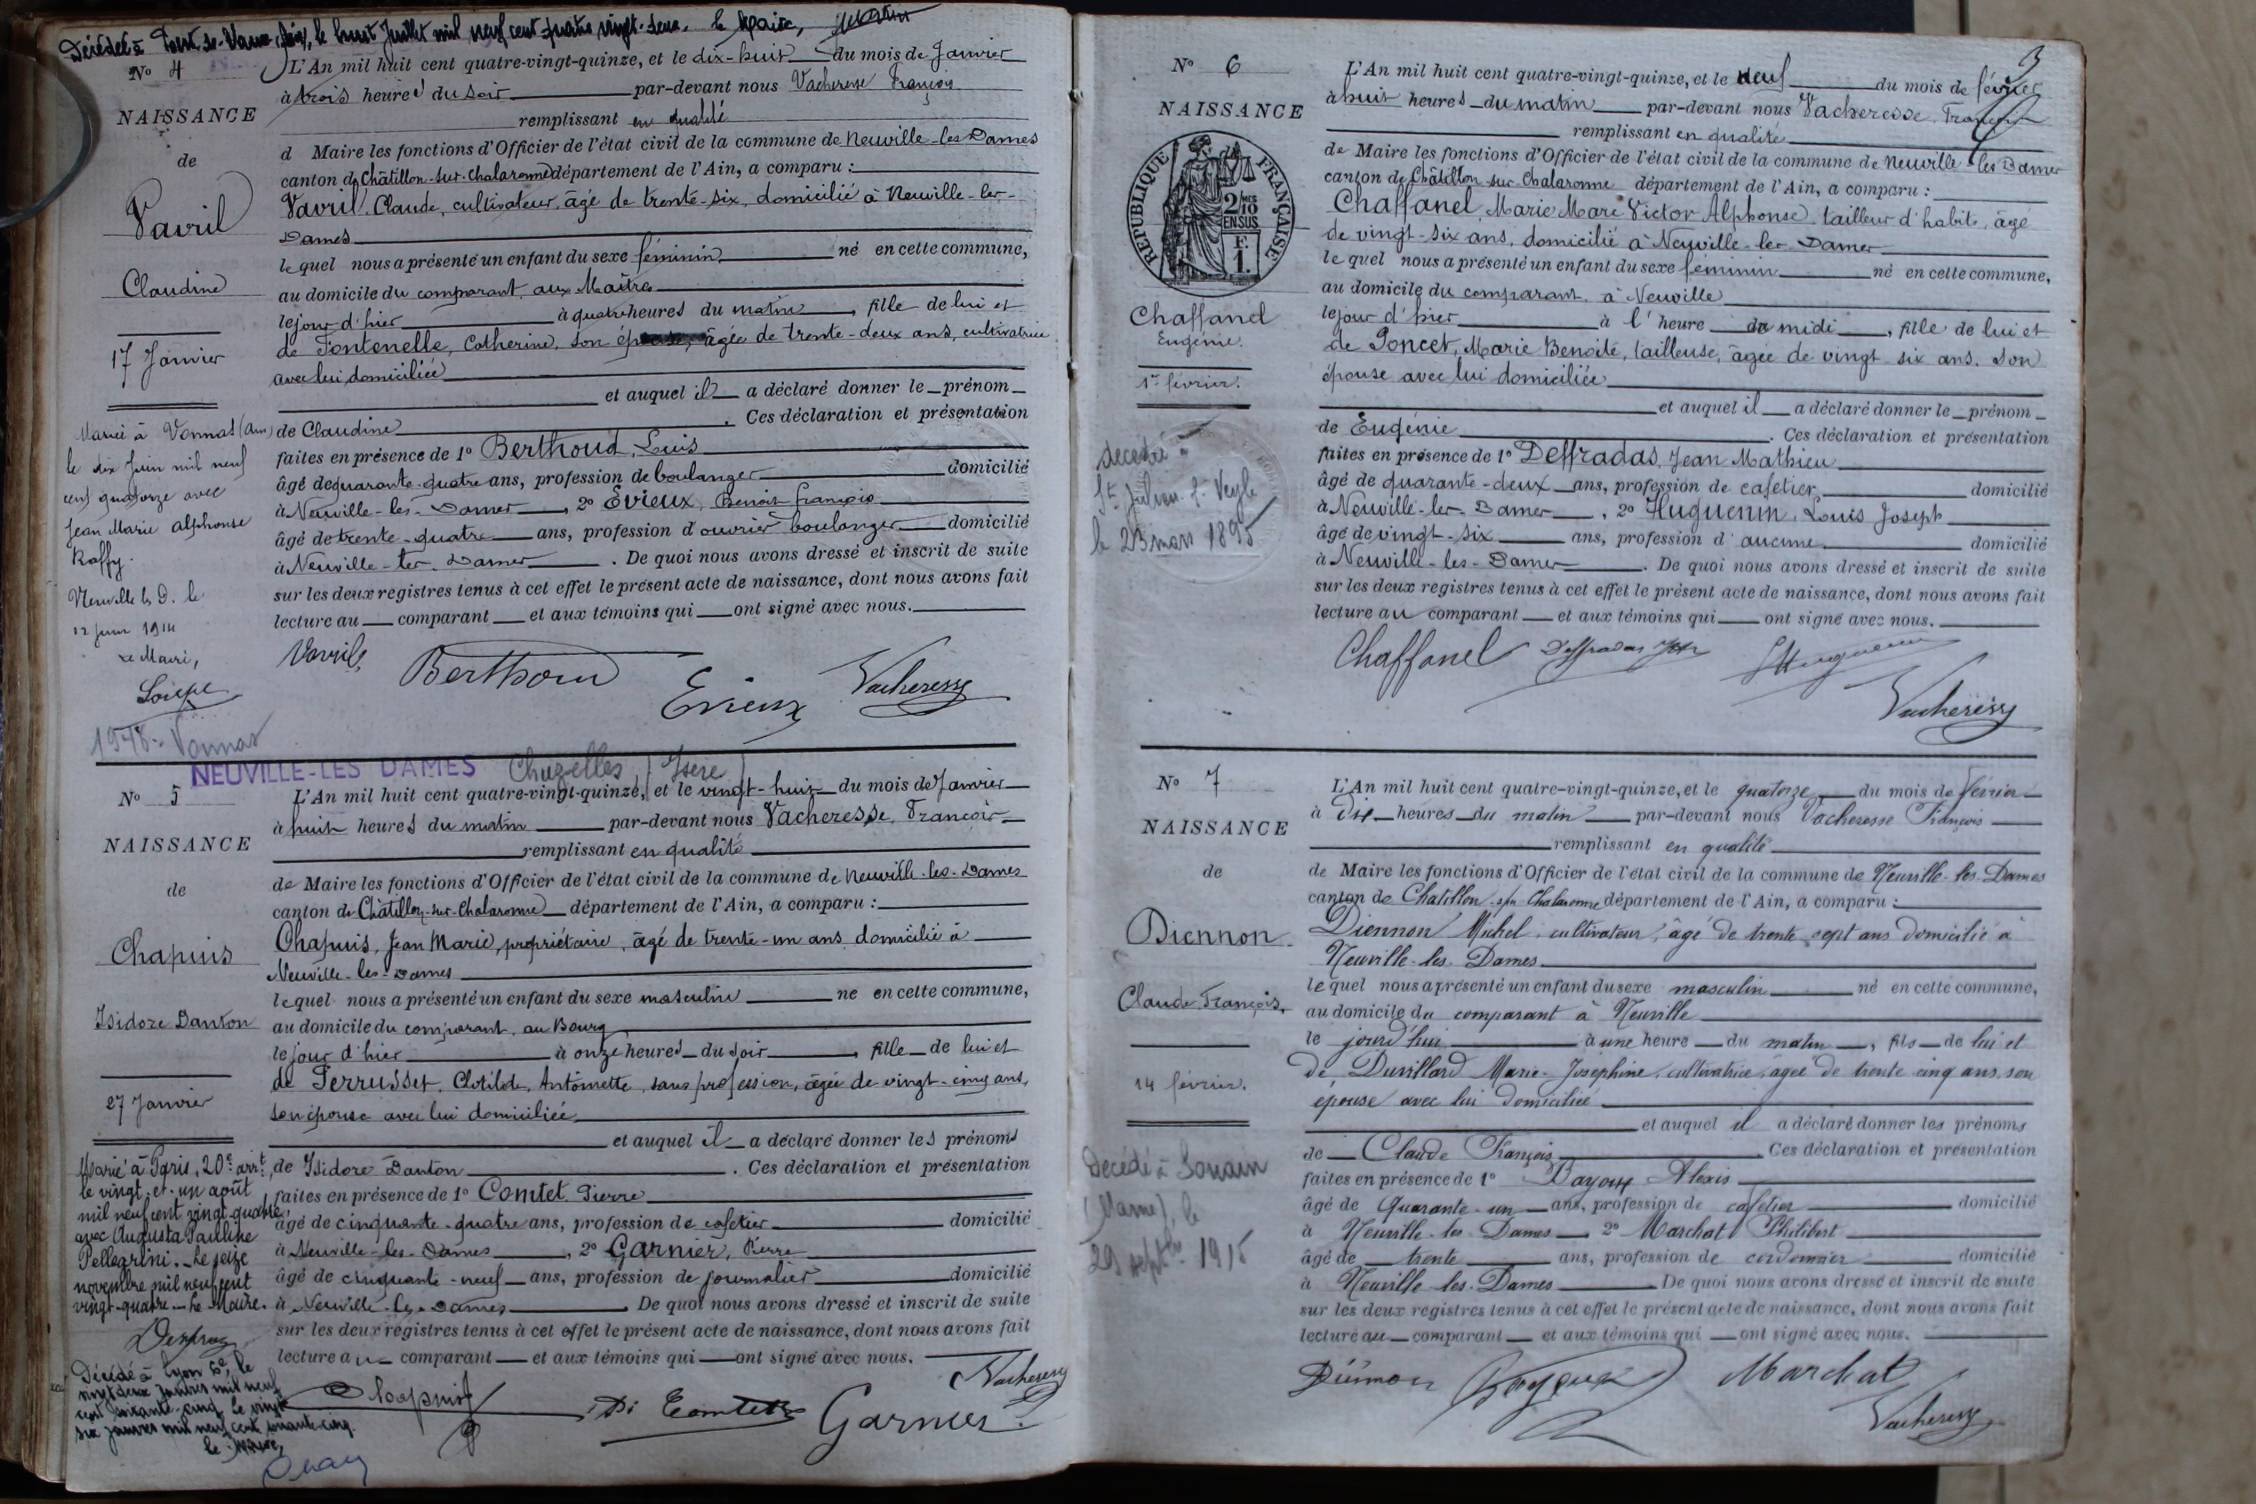 Décédée à Pont-de-Vaux (Ain), le huit Juillet mil neuf cent quatre vingt-deux. le Maire,
No 4
NAISSANCE
de
Vavril
Claudine
17 Janvier
Mariée à Vonnas (Ain)
le dix Juin mil neuf
cent quatorze avec
Jean Marie Alphonse
Raffy.
Neuville les D. le
12 Juin 1914
Le Maire,
1978 - Vonnas
L'An mil huit cent quatre-vingt-quinze, et le dix-huit du mois de Janvier
à trois heures du soir par-devant nous Vacheresse François
remplissant en qualité
d Maire les fonctions d'Officier de l'état civil de la commune de Neuville-les-Dames
canton de Châtillon-sur-Chalaronne département de l'Ain, a comparu :
Vavril, Claude, cultivateur, âgé de trente-six, domicilié à Neuville-les-
Dames
lequel nous a présenté un enfant du sexe féminin né en cette commune,
au domicile du comparant, aux Maîtres
le jour d'hier à quatre heures du matin, fille de lui et
de Fontenelle, Catherine, son épouse, âgée de trente-deux ans, cultivatrice
avec lui domiciliée
et auquel il a déclaré donner le prénom
de Claudine. Ces déclaration et présentation
faites en présence de 1o Berthoud, Louis
âgé de quarante-quatre ans, profession de boulanger domicilié
à Neuville-les-Dames, 2o Evieux, Benoit François
âgé de trente-quatre ans, profession d'ouvrier boulanger domicilié
à Neuville-les-Dames. De quoi nous avons dressé et inscrit de suite
sur les deux registres tenus à cet effet le présent acte de naissance, dont nous avons fait
lecture au comparant et aux témoins qui ont signé avec nous.
Vavril Berthoud Evieux Vacheresse
NEUVILLE-LES DAMES Chuzelles (Isère)
No 5
NAISSANCE
de
Chapuis
Isidore Danton
27 Janvier
Marié à Paris, 20e arrt,
le vingt-et-un août
mil neuf cent vingt-quatre,
avec Augusta Pauline
Pellegrini. Le seize
novembre mil neuf cent
vingt-quatre. Le Maire.
Décédé à Lyon 6e, le
vingt deux janvier mil neuf
cent soixante-cinq, le vingt
six janvier mil neuf cent soixante cinq.
le Maire,
L'An mil huit cent quatre-vingt-quinze, et le vingt-huit du mois de Janvier
à huit heures du matin par-devant nous Vacheresse, François
remplissant en qualité
de Maire les fonctions d'Officier de l'état civil de la commune de Neuville-les-Dames
canton de Châtillon-sur-Chalaronne département de l'Ain, a comparu :
Chapuis, Jean Marie, propriétaire, âgé de trente-un ans, domicilié à
Neuville-les-Dames
lequel nous a présenté un enfant du sexe masculin né en cette commune,
au domicile du comparant, au Bourg
le jour d'hier à onze heures du soir, fille de lui et
de Perrusset, Clotilde, Antoinette, sans profession, âgée de vingt-cinq ans,
son épouse avec lui domiciliée
et auquel il a déclaré donner les prénoms
de Isidore Danton. Ces déclaration et présentation
faites en présence de 1o Comtet, Pierre
âgé de cinquante-quatre ans, profession de cafetier domicilié
à Neuville-les-Dames, 2o Garnier, Pierre
âgé de cinquante-neuf ans, profession de journalier domicilié
à Neuville-les-Dames. De quoi nous avons dressé et inscrit de suite
sur les deux registres tenus à cet effet le présent acte de naissance, dont nous avons fait
lecture au comparant et aux témoins qui ont signé avec nous.
Chapuis Comtet Garnier Vacheresse
3
No 6
NAISSANCE
RÉPUBLIQUE FRANÇAISE
2/10
EN SUS
F.
1.
Chaffanel
Eugénie.
1er février.
décédée à
St Julien s. Veyle
le 23 mars 1895
L'An mil huit cent quatre-vingt-quinze, et le neuf du mois de février
à huit heures du matin par-devant nous Vacheresse François
remplissant en qualité
de Maire les fonctions d'Officier de l'état civil de la commune de Neuville-les-Dames
canton de Châtillon-sur-Chalaronne département de l'Ain, a comparu :
Chaffanel, Marie Marc Victor Alphonse, tailleur d'habits, âgé
de vingt-six ans, domicilié à Neuville-les-Dames
lequel nous a présenté un enfant du sexe féminin né en cette commune,
au domicile du comparant, à Neuville
le jour d'hier à l'heure de midi, fille de lui et
de Poncet, Marie Benoite, tailleuse, âgée de vingt six ans, son
épouse avec lui domiciliée
et auquel il a déclaré donner le prénom
de Eugénie. Ces déclaration et présentation
faites en présence de 1o Deffradas, Jean Mathieu
âgé de quarante-deux ans, profession de cafetier, domicilié
à Neuville-les-Dames, 2o Huguenin, Louis Joseph
âgé de vingt-six ans, profession d'aucune domicilié
à Neuville-les-Dames. De quoi nous avons dressé et inscrit de suite
sur les deux registres tenus à cet effet le présent acte de naissance, dont nous avons fait
lecture au comparant et aux témoins qui ont signé avec nous.
Chaffanel Deffradas Huguenin
Vacheresse
No 7
NAISSANCE
de
Diennon
Claude François,
14 février.
Décédé à Souain
(Marne), le
29 septbre 1915
L'An mil huit cent quatre-vingt-quinze, et le quatorze du mois de février
à dix heures du matin par-devant nous Vacheresse François
remplissant en qualité
de Maire les fonctions d'Officier de l'état civil de la commune de Neuville-les-Dames
canton de Chatillon-sur-Chalaronne département de l'Ain, a comparu :
Diennon Michel, cultivateur, âgé de trente sept ans domicilié à
Neuville-les-Dames
lequel nous a présenté un enfant du sexe masculin né en cette commune,
au domicile du comparant à Neuville
le jourd'hui à une heure du matin, fils de lui et
de Duvillard Marie-Joséphine, cultivatrice, âgée de trente cinq ans, son
épouse avec lui domiciliée
et auquel il a déclaré donner les prénoms
de Claude François Ces déclaration et présentation
faites en présence de 1o Bayoux Alexis
âgé de quarante-un ans, profession de cafetier domicilié
à Neuville-les-Dames, 2o Marchat Philibert
âgé de trente ans, profession de cordonnier domicilié
à Neuville-les-Dames De quoi nous avons dressé et inscrit de suite
sur les deux registres tenus à cet effet le présent acte de naissance, dont nous avons fait
lecture au comparant et aux témoins qui ont signé avec nous.
Diennon Bayoux Marchat
Vacheresse